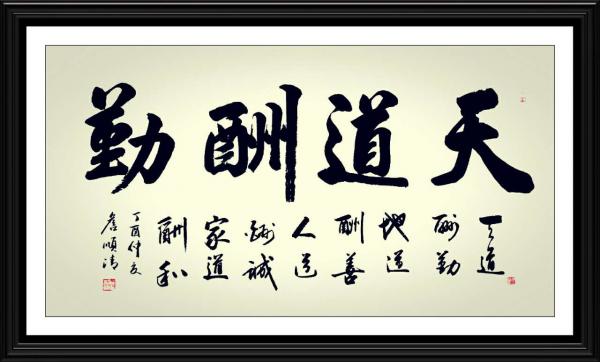 天道酬勤
天道
酬勤
地道
酬善
人道
酬诚
家道
酬和
丁酉仲夏
詹順清